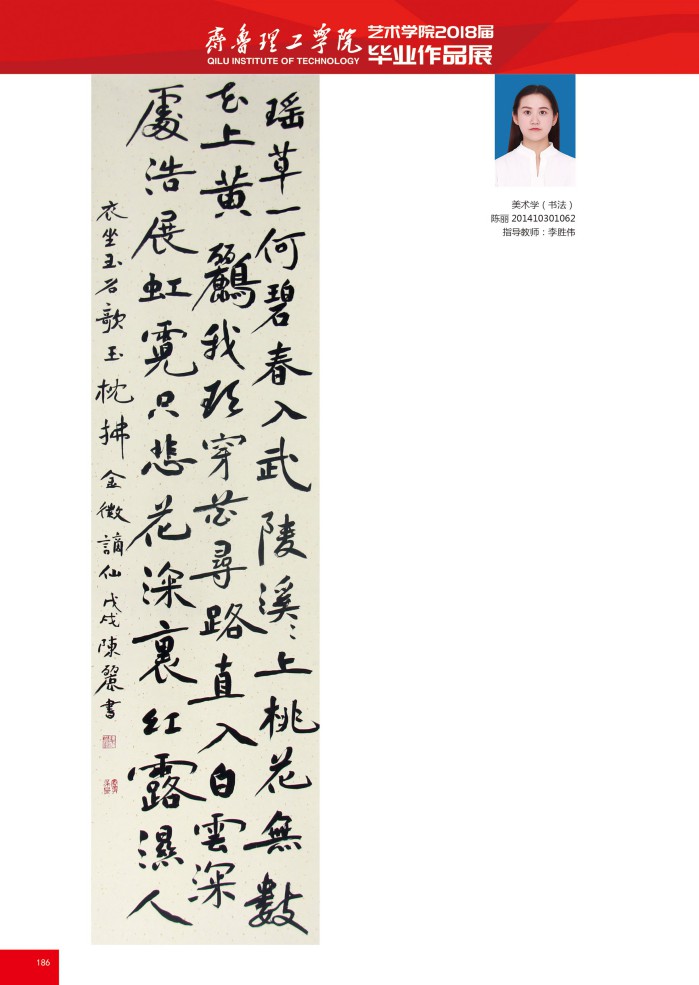 齊魯理工學院
QILU INSTITUTE OF TECHNOLOGY
艺术学院2018届
毕业作品展
美术学（书法）
陈丽 201410301062
指导教师：李胜伟
瑶草一何碧春入武陵溪〻上桃花無數
花上黄鸝我欲穿花尋路直入白雲深
處浩展虹霓只悲花深裏紅露濕人
衣坐玉石歌玉枕拂金徽謫仙戊戌陳麗書
186